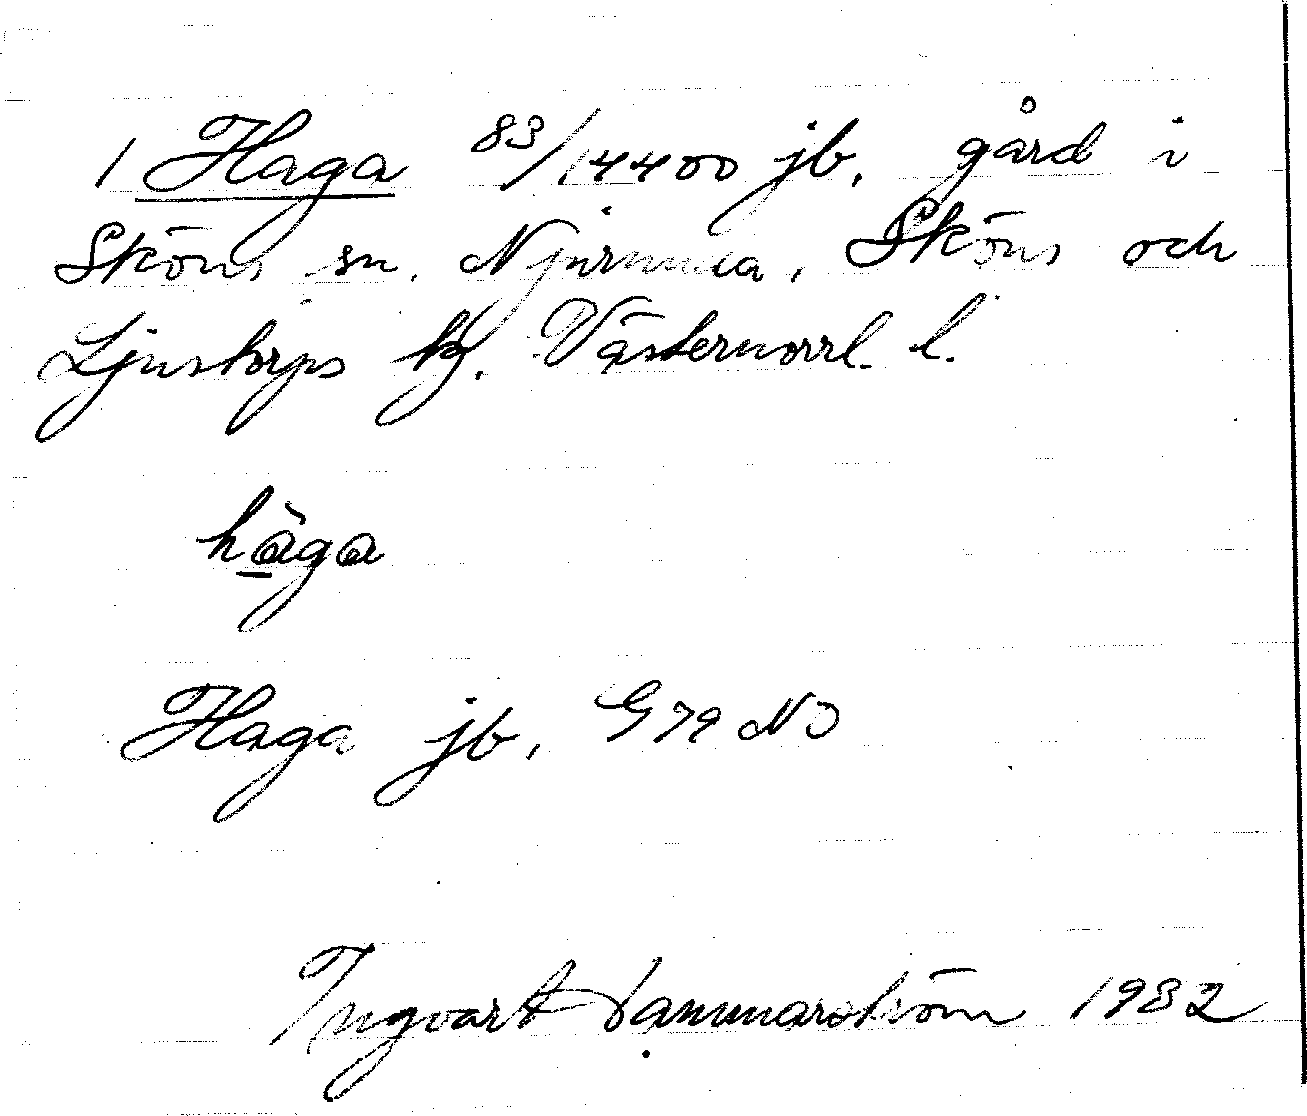 1 Haga 83/14400 jb, gård i
Sköns sn. Njurunda, Sköns och
Ljustorps tg. Västernorrl. l.
hàga
Haga jb, G79 NO
Ingvart Hammarström 1982